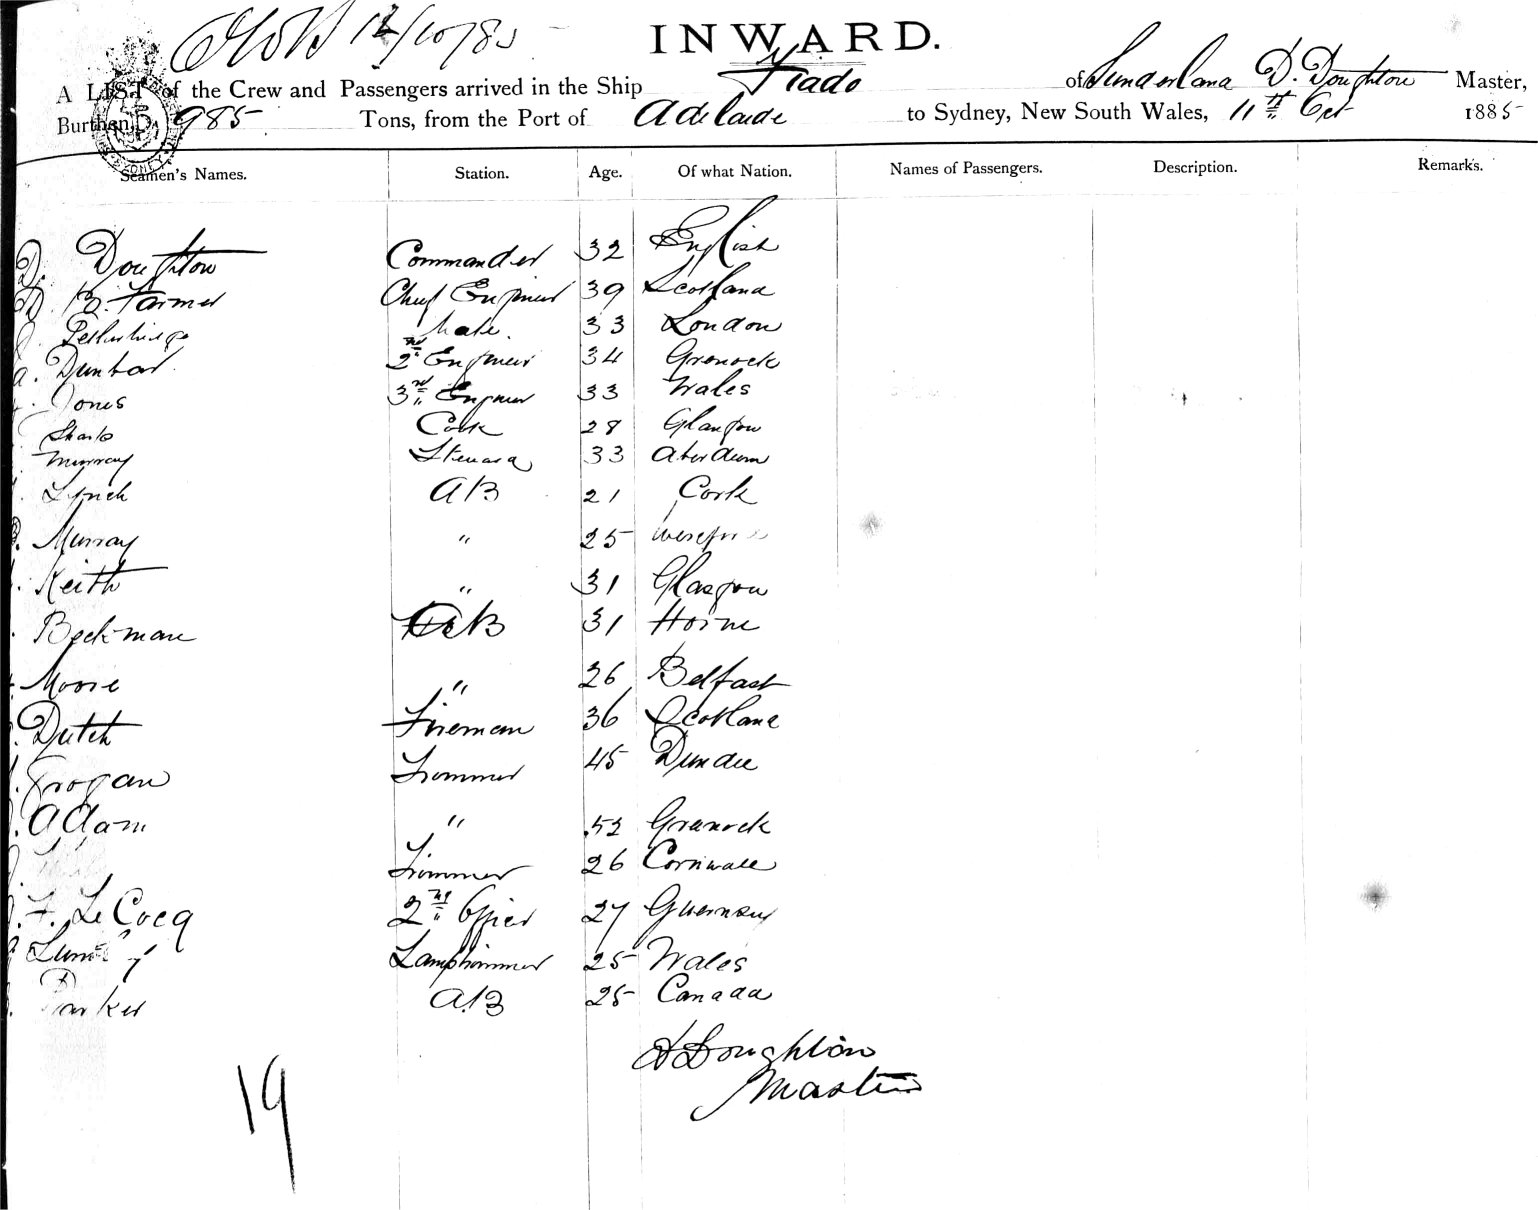 12/10/85
INWARD.
A LIST of the Crew and Passengers arrived in the Ship Fiado of Sunderland D. Doughton Master,
Burthen 985 Tons, from the Port of Adelaide to Sydney, New South Wales, 11th Oct 1885
Seamen's Names. Station. Age. Of what Nation. Names of Passengers. Description. Remarks.
D. Doughton Commander 32 English
B. Farmer Chief Engineer 39 Scotland
Petherbridge Mate. 33 London
a. Dunbar 2nd Engineer 34 Grenock
Jones 3rd Engineer 33 Wales
Sharp Cook 28 Glasgow
Murray Steward 33 Aberdeen
Lynch AB 21 Cork
Murray " 25
Keith " 31 Glasgow
Beckman AB 31 Horne
Moore " 26 Belfast
Dutch Fireman 36 Scotland
Grogan Trimmer 45 Dundee
Adam " 52 Grenock
Trimmer 26 Cornwall
F. Le Cocq 2nd Officer 27 Guernsey
Lamptrimmer 25 Wales
Parker A.B 25 Canada
D Doughton
Master
19